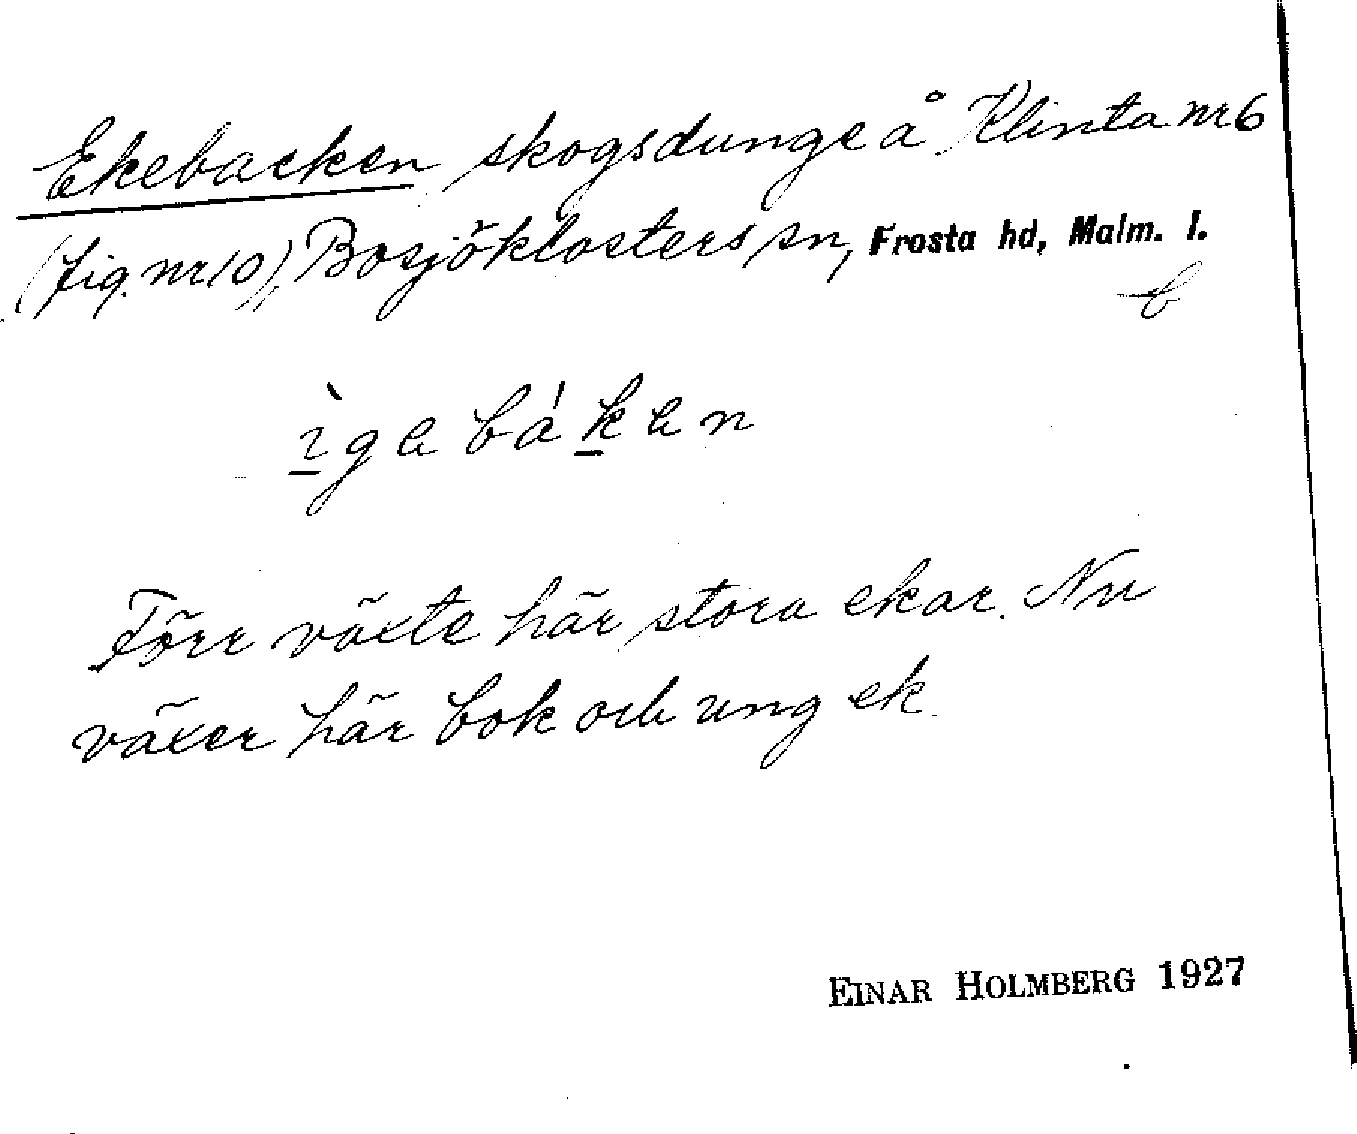 Ekebacken skogsdunge å Klinta nr 6
(fig. nr 10), Bosjöklosters sn, Frosta hd, Malm. l.
b
Förr växte här stora ekar. Nu
växer här bok och ung ek.
EINAR HOLMBERG 1927